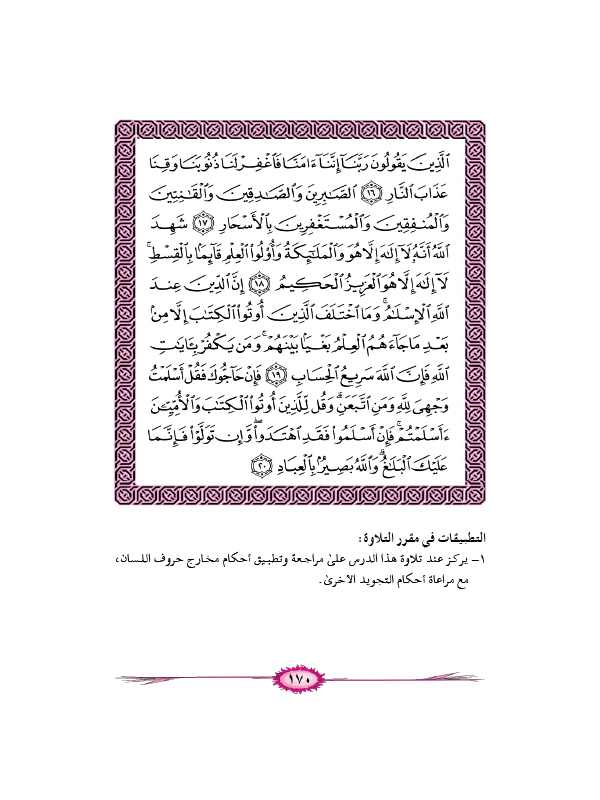 ٱلَّذِينَ يَقُولُونَ رَبَّنَآ إِنَّنَآ ءَامَنَّا فَٱغْفِرْ لَنَا ذُنُوبَنَا وَقِنَا
عَذَابَ ٱلنَّارِ ١٦ ٱلصَّٰبِرِينَ وَٱلصَّٰدِقِينَ وَٱلْقَٰنِتِينَ
وَٱلْمُنفِقِينَ وَٱلْمُسْتَغْفِرِينَ بِٱلْأَسْحَارِ ١٧ شَهِدَ
ٱللَّهُ أَنَّهُۥ لَآ إِلَٰهَ إِلَّا هُوَ وَٱلْمَلَٰٓئِكَةُ وَأُو۟لُوا۟ ٱلْعِلْمِ قَآئِمًۢا بِٱلْقِسْطِ ۚ
لَآ إِلَٰهَ إِلَّا هُوَ ٱلْعَزِيزُ ٱلْحَكِيمُ ١٨ إِنَّ ٱلدِّينَ عِندَ
ٱللَّهِ ٱلْإِسْلَٰمُ ۗ وَمَا ٱخْتَلَفَ ٱلَّذِينَ أُوتُوا۟ ٱلْكِتَٰبَ إِلَّا مِنۢ
بَعْدِ مَا جَآءَهُمُ ٱلْعِلْمُ بَغْيًۢا بَيْنَهُمْ ۗ وَمَن يَكْفُرْ بِـَٔايَٰتِ
ٱللَّهِ فَإِنَّ ٱللَّهَ سَرِيعُ ٱلْحِسَابِ ١٩ فَإِنْ حَآجُّوكَ فَقُلْ أَسْلَمْتُ
وَجْهِىَ لِلَّهِ وَمَنِ ٱتَّبَعَنِ ۗ وَقُل لِّلَّذِينَ أُوتُوا۟ ٱلْكِتَٰبَ وَٱلْأُمِّيِّـۧنَ
ءَأَسْلَمْتُمْ ۚ فَإِنْ أَسْلَمُوا۟ فَقَدِ ٱهْتَدَوا۟ ۖ وَّإِن تَوَلَّوْا۟ فَإِنَّمَا
عَلَيْكَ ٱلْبَلَٰغُ ۗ وَٱللَّهُ بَصِيرٌۢ بِٱلْعِبَادِ ٢٠
التطبيقات في مقرر التلاوة :
١- يركز عند تلاوة هذا الدرس على مراجعة وتطبيق أحكام مخارج حروف اللسان،
مع مراعاة أحكام التجويد الأخرى.
١٧٠